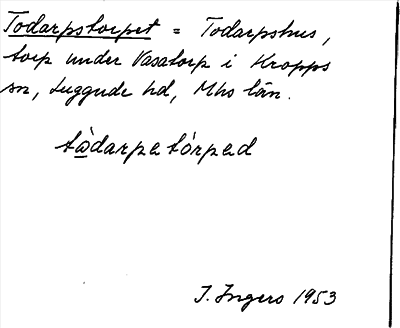 Todarpstorpet = Todarpshus,
torp under Vasatorp i Kropps
sn, Luggude hd, Mhs län.
tòdarpatórpad
I. Ingers 1953